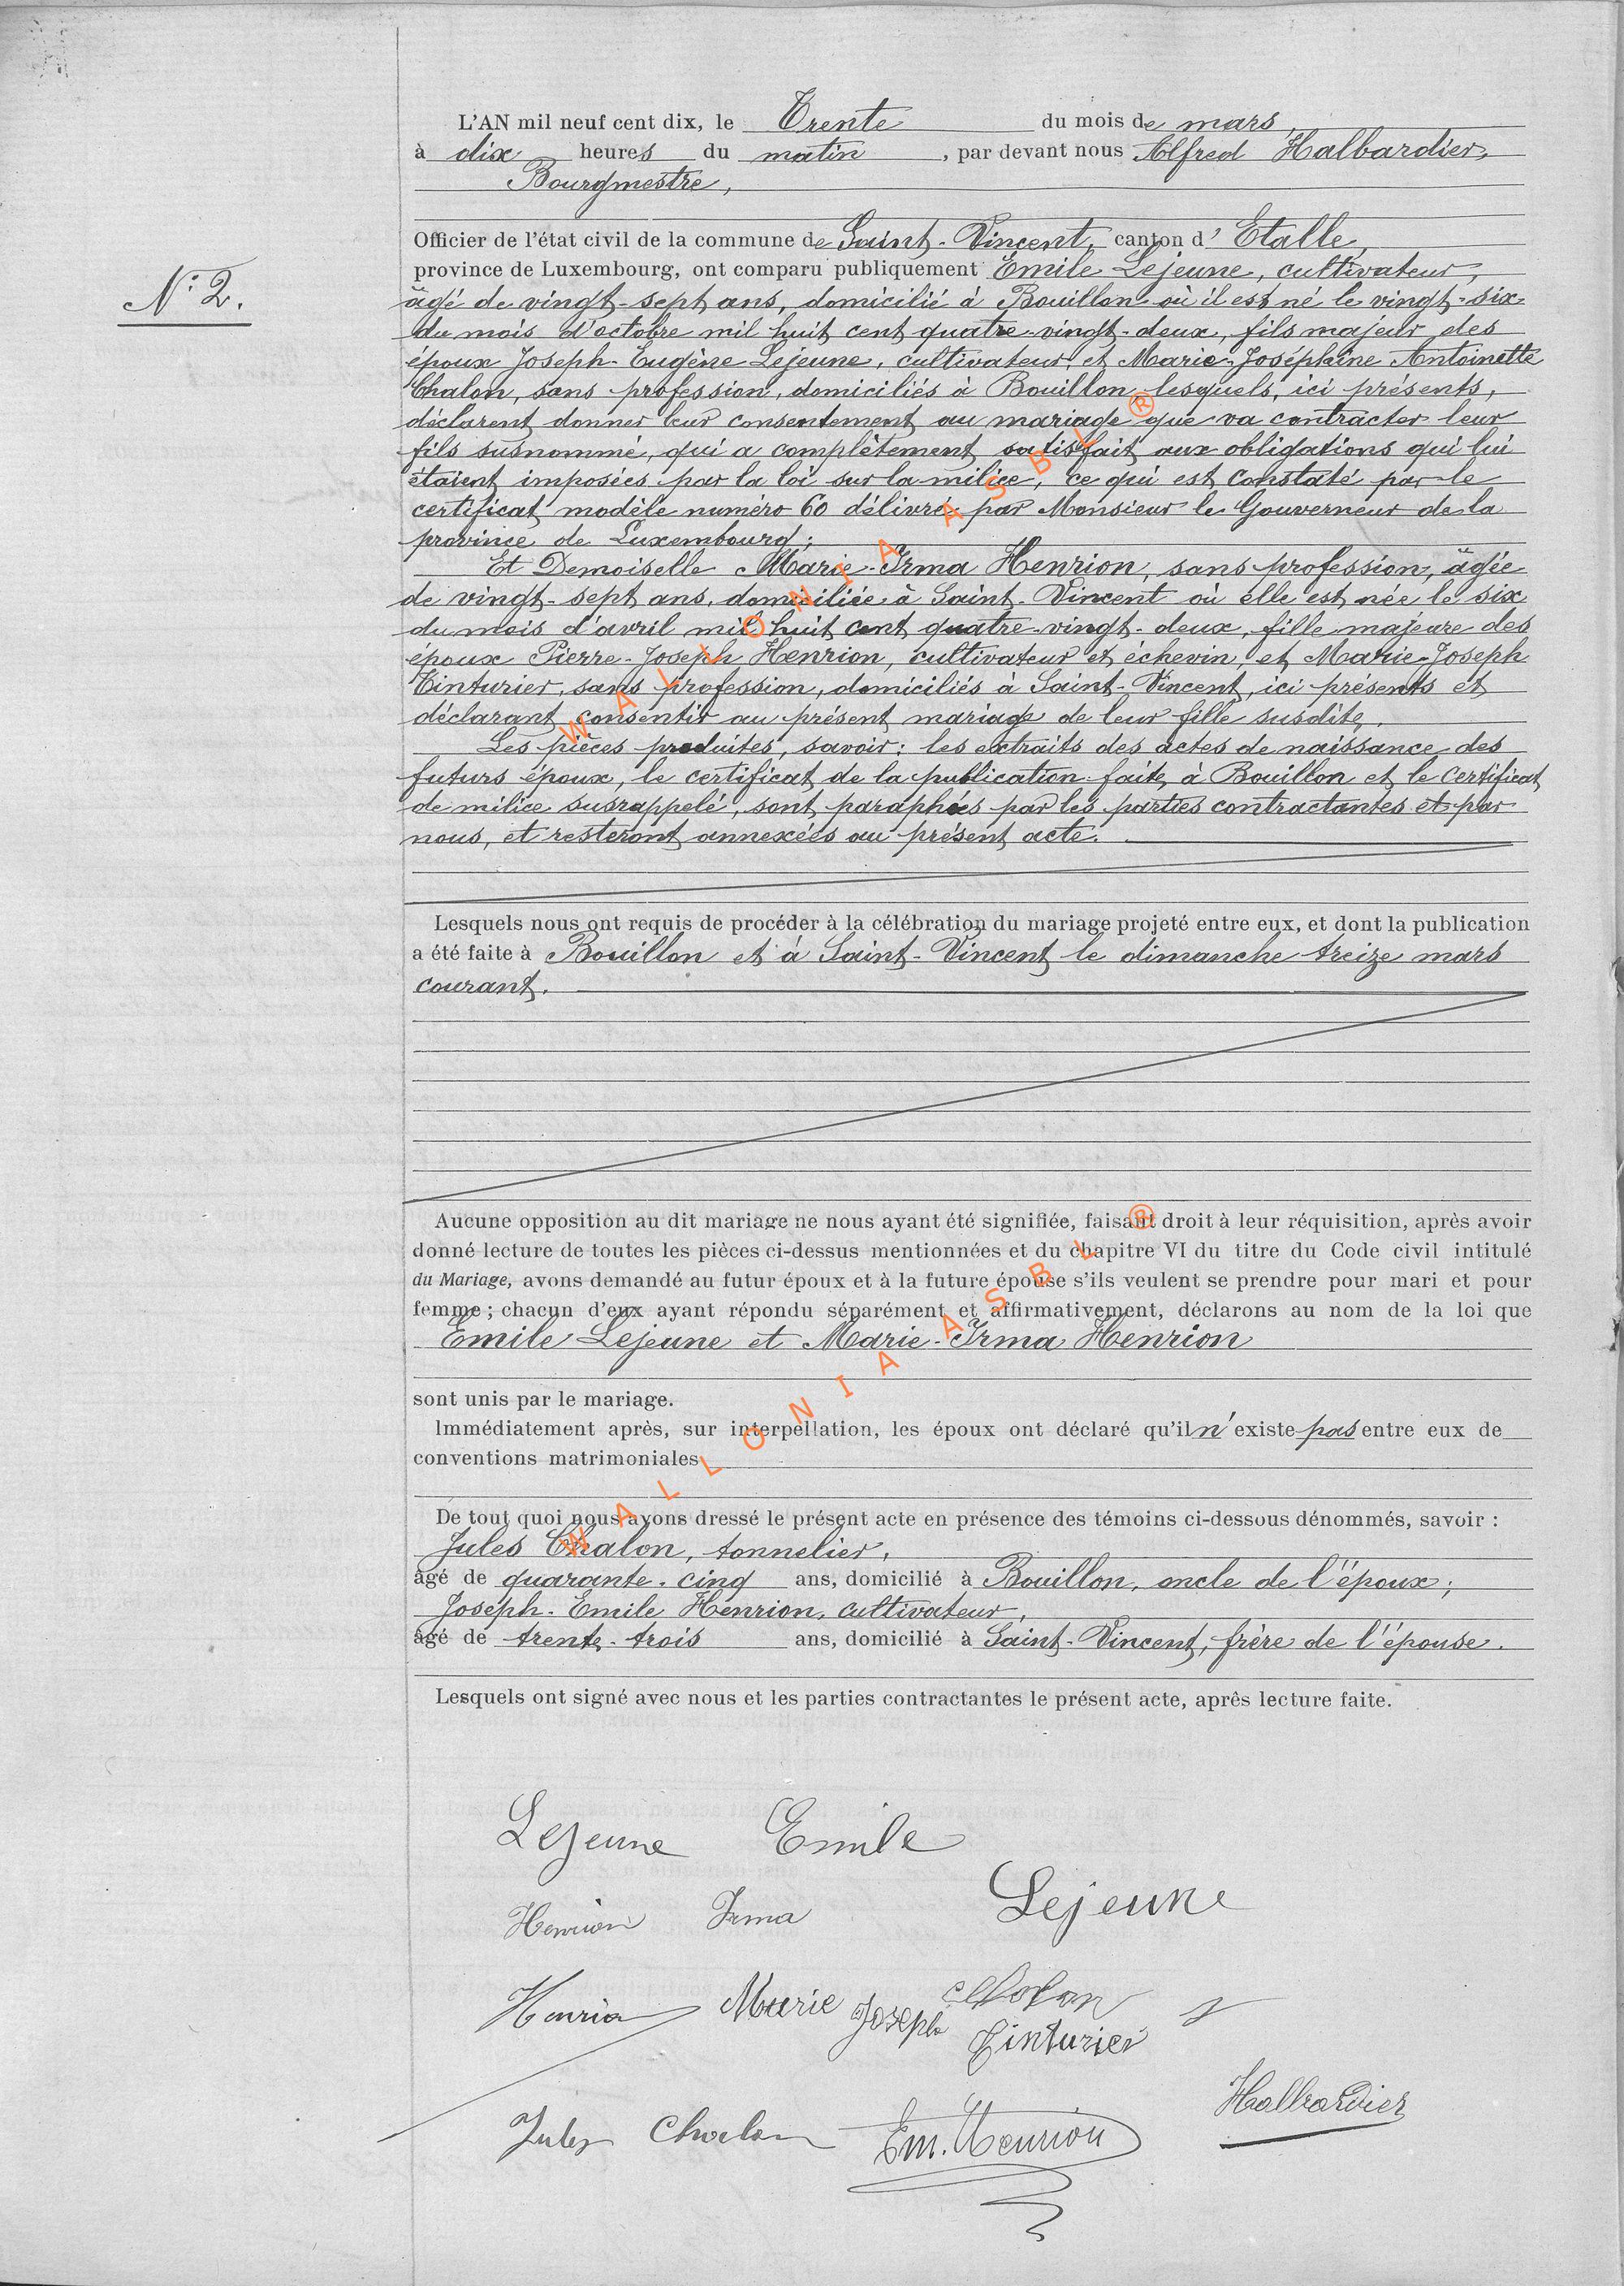 L'AN mil neuf cent dix, le Trente du mois de mars,
à dix heures du matin, par devant nous Alfred Halbardier,
Bourgmestre,
Officier de l'état civil de la commune de Saint-Vincent, canton d'Etalle,
province de Luxembourg, ont comparu publiquement Emile Lejeune, cultivateur,
N° 2.
âgé de vingt-sept ans, domicilié à Bouillon où il est né le vingt-six
du mois d'octobre mil huit cent quatre-vingt-deux, fils majeur des
époux Joseph-Eugène Lejeune, cultivateur, et Marie-Joséphine Antoinette
Chalon, sans profession, domiciliés à Bouillon, lesquels, ici présents,
déclarent donner leur consentement au mariage que va contracter leur
fils susnommé, qui a complètement satisfait aux obligations qui lui
étaient imposées par la loi sur la milice, ce qui est constaté par le
certificat modèle numéro 60 délivré par Monsieur le Gouverneur de la
province de Luxembourg;
Et Demoiselle Marie-Irma Henrion, sans profession, âgée
de vingt-sept ans, domiciliée à Saint-Vincent où elle est née le six
du mois d'avril mil huit cent quatre-vingt-deux, fille majeure des
époux Pierre-Joseph Henrion, cultivateur et échevin, et Marie-Joseph
Tinturier, sans profession, domiciliés à Saint-Vincent, ici présents et
déclarant consentir au présent mariage de leur fille susdite.
Les pièces produites, savoir: les extraits des actes de naissance des
futurs époux, le certificat de la publication faite à Bouillon et le certificat
de milice susrappelé, sont paraphées par les parties contractantes et par
nous, et resteront annexées au présent acte.
Lesquels nous ont requis de procéder à la célébration du mariage projeté entre eux, et dont la publication
a été faite à Bouillon et à Saint-Vincent le dimanche treize mars
courant.
Aucune opposition au dit mariage ne nous ayant été signifiée, faisant droit à leur réquisition, après avoir
donné lecture de toutes les pièces ci-dessus mentionnées et du chapitre VI du titre du Code civil intitulé
du Mariage, avons demandé au futur époux et à la future épouse s'ils veulent se prendre pour mari et pour
femme ; chacun d'eux ayant répondu séparément et affirmativement, déclarons au nom de la loi que
Emile Lejeune et Marie-Irma Henrion
sont unis par le mariage.
Immédiatement après, sur interpellation, les époux ont déclaré qu'il n'existe pas entre eux de
conventions matrimoniales
De tout quoi nous avons dressé le présent acte en présence des témoins ci-dessous dénommés, savoir :
Jules Chalon, tonnelier,
âgé de quarante-cinq ans, domicilié à Bouillon, oncle de l'époux;
Joseph-Emile Henrion, cultivateur,
âgé de trente-trois ans, domicilié à Saint-Vincent, frère de l'épouse.
Lesquels ont signé avec nous et les parties contractantes le présent acte, après lecture faite.
Lejeune Emile
Lejeune
Henrion Irma
Henrion Marie Joseph Tinturier
Chalon
Halbardier
Jules Chalon Em. Henrion
WALLONIA ASBL ®
WALLONIA ASBL ®